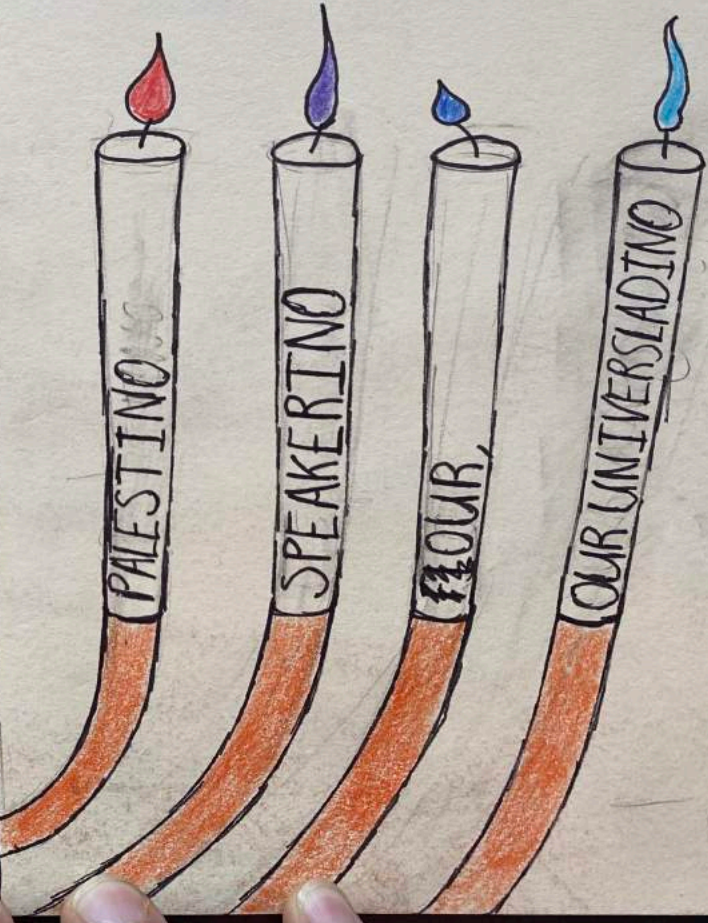 PALESTINO
SPEAKERINO
OUR,
OUR UNIVERSLADINO